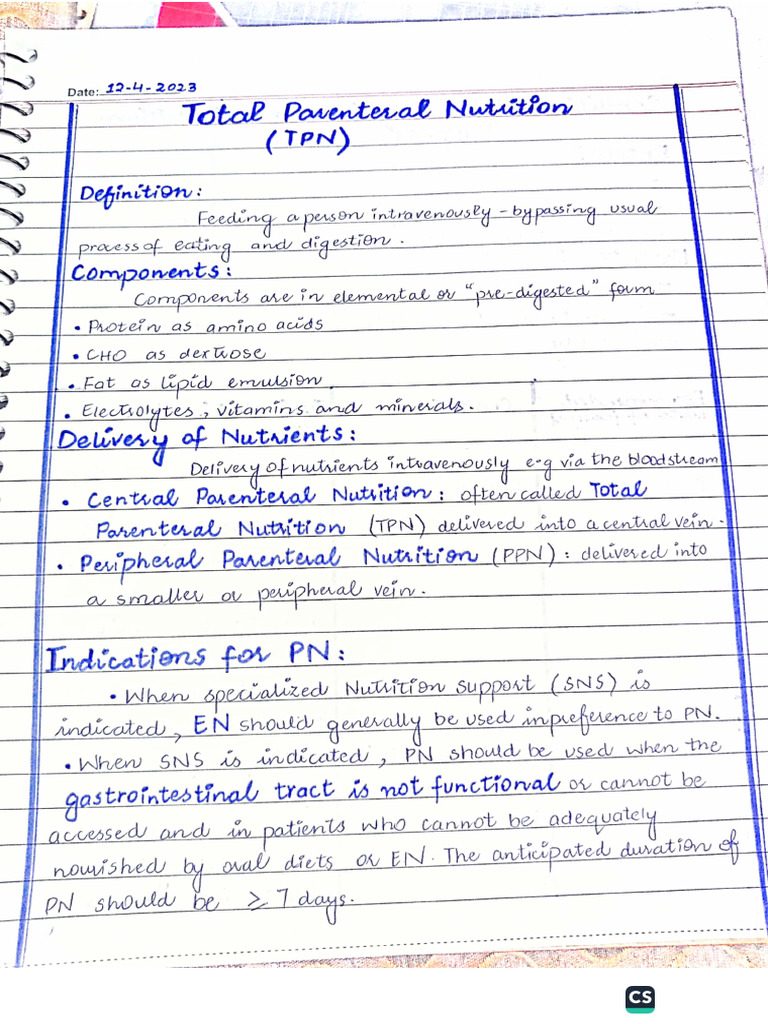 Date: 12-4-2023
Total Parenteral Nutrition
(TPN)
Definition:
Feeding a person intravenously - bypassing usual
process of eating and digestion.
Components:
Components are in elemental or "pre-digested" form
• Protein as amino acids
• CHO as dextrose
• Fat as lipid emulsion.
• Electrolytes, vitamins and minerals.
Delivery of Nutrients:
Delivery of nutrients intravenously e-g via the bloodstream
• Central Parenteral Nutrition: often called Total
Parenteral Nutrition (TPN) delivered into a central vein.
• Peripheral Parenteral Nutrition (PPN): delivered into
a smaller or peripheral vein.
Indications for PN:
• When specialized Nutrition Support (SNS) is
indicated, EN should generally be used in preference to PN.
• When SNS is indicated, PN should be used when the
gastrointestinal tract is not functional or cannot be
accessed and in patients who cannot be adequately
nourished by oral diets or EN. The anticipated duration of
PN should be ≥ 7 days.
CS